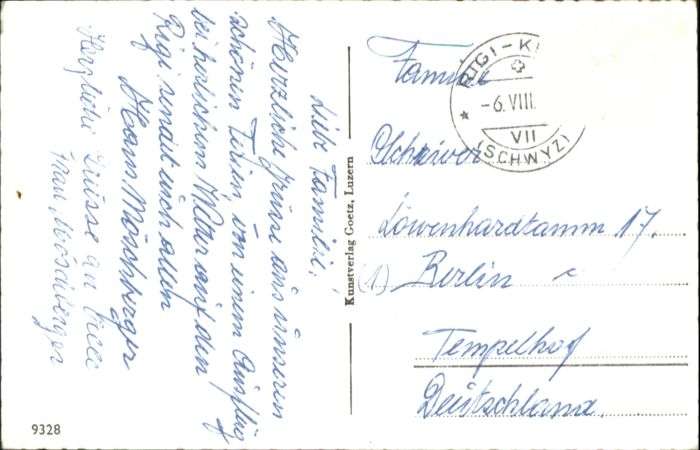 Liebe Familie!
Herzliche Grüsse aus unseren
schönen Ferien, von einem Ausflug
bei herlichem Wetter auf den
Rigi sendet euch allen
Hans Möschberger
Herzliche Grüsse an Alle
Frau Möschberger
Kunstverlag Goetz, Luzern
9328
RIGI-K
-6.VIII.
VII
(SCHWYZ)
Familie
Löwenhardtamm 17.
(1) Berlin
Tempelhof
Deutschland.